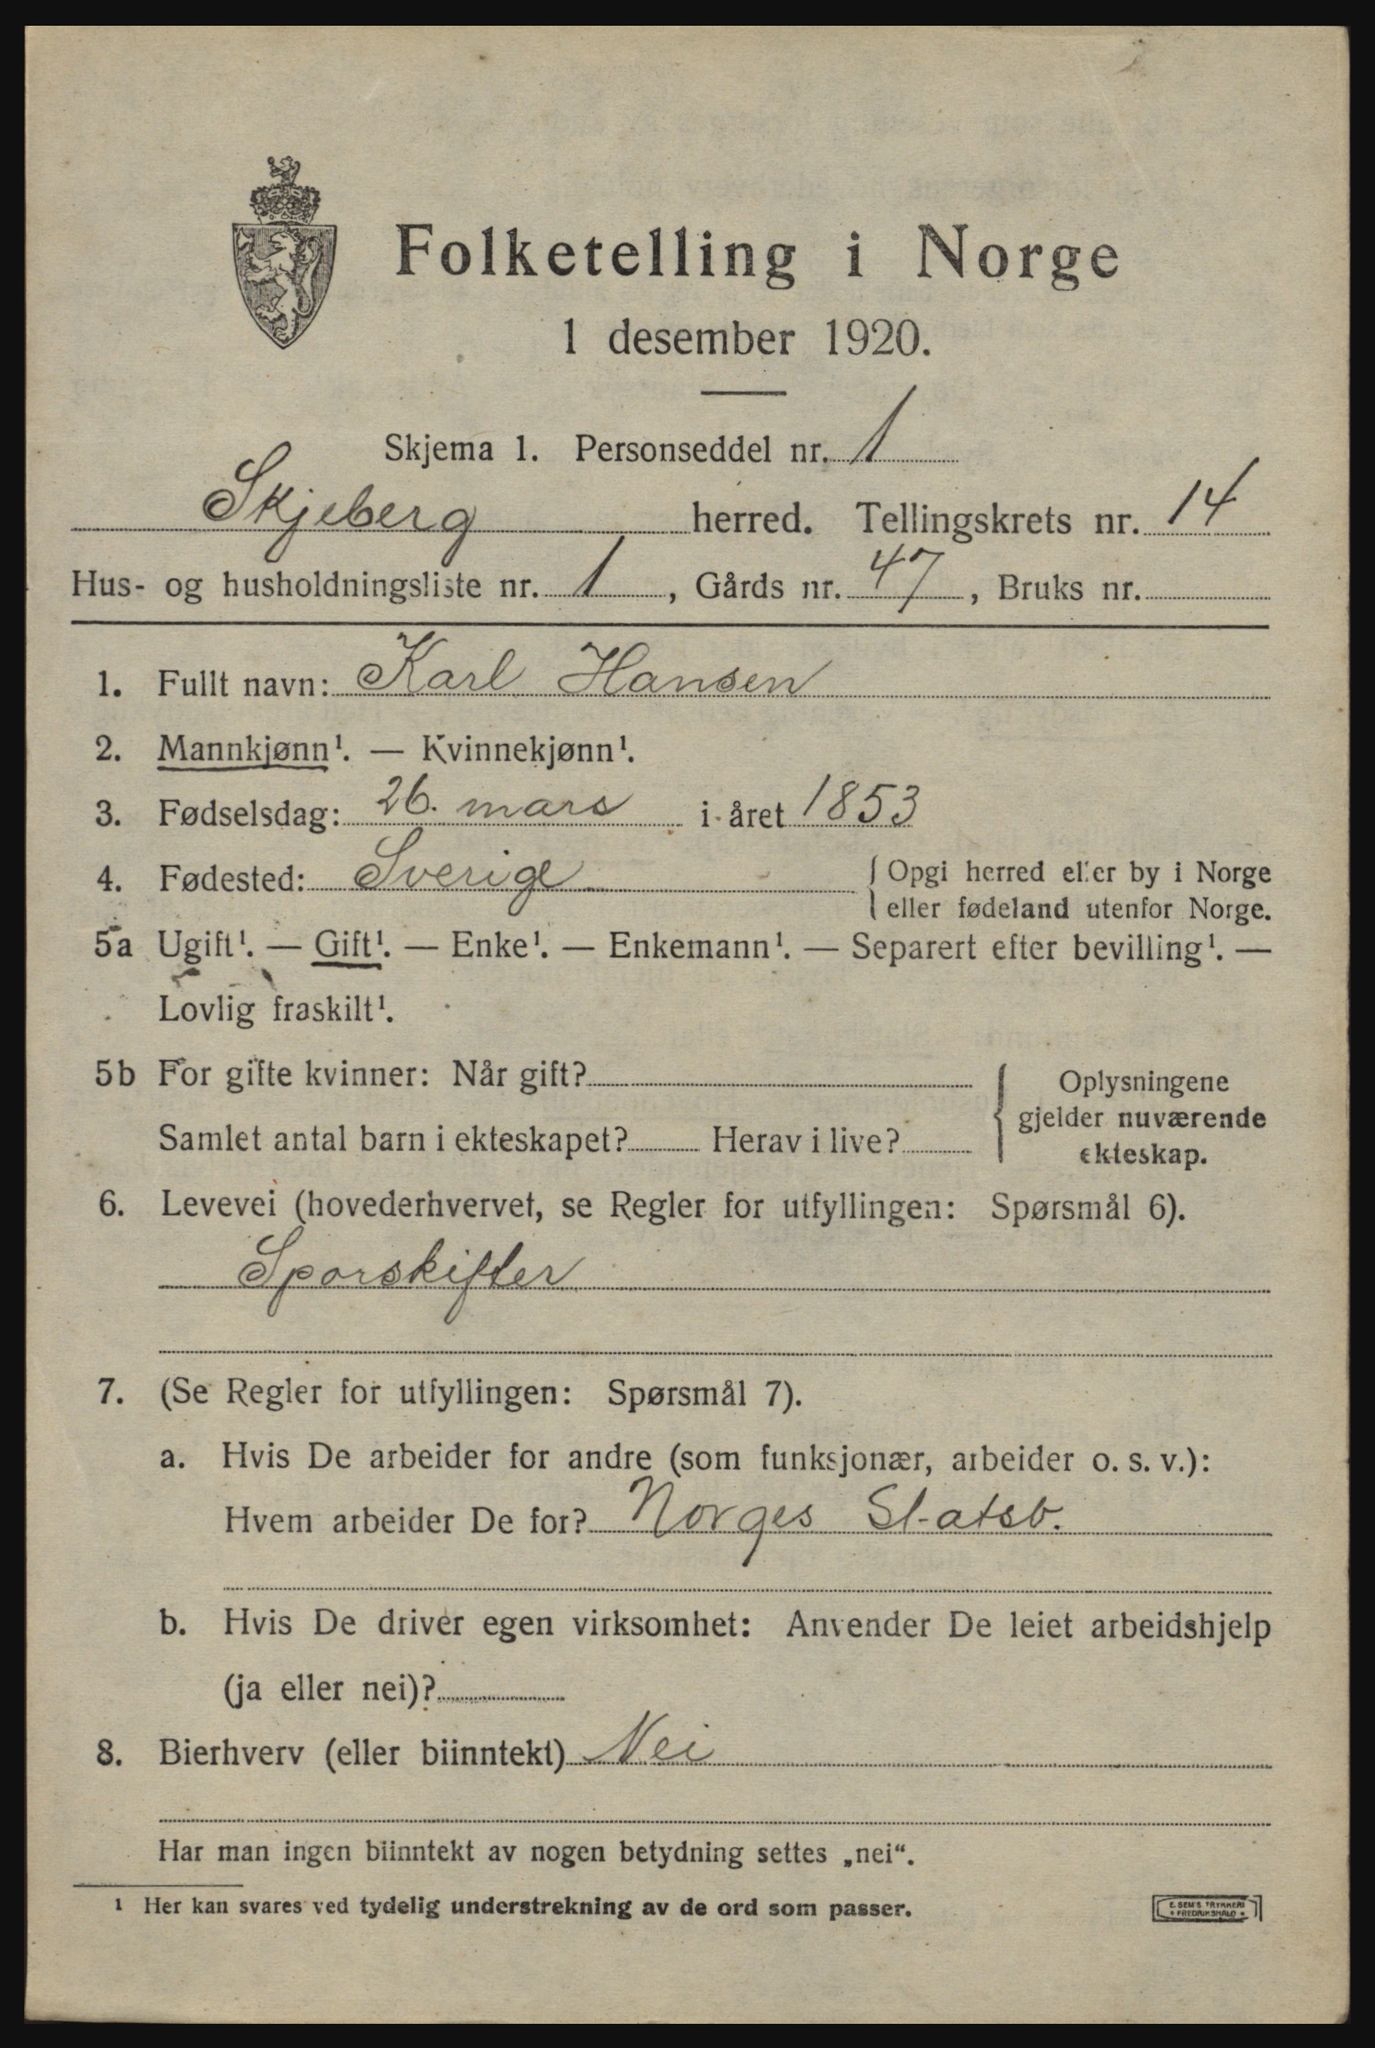 Folketelling i Norge
1 desember 1920.
Skjema 1. Personseddel nr. 1
Skjeberg herred. Tellingskrets nr. 14
Hus- og husholdningsliste nr. 1, Gårds nr. 47, Bruks nr.
1. Fullt navn: Karl Hansen
2. Mannkjønn¹. — Kvinnekjønn¹.
3. Fødselsdag: 26. mars i året 1853
4. Fødested: Sverige { Opgi herred eller by i Norge
eller fødeland utenfor Norge.
5a Ugift¹. — Gift¹. — Enke¹. — Enkemann¹. — Separert efter bevilling¹. —
Lovlig fraskilt¹.
5b For gifte kvinner: Når gift?
Samlet antal barn i ekteskapet? Herav i live?
{ Oplysningene
gjelder nuværende
ekteskap.
6. Levevei (hovederhvervet, se Regler for utfyllingen: Spørsmål 6).
Sporskifter
7. (Se Regler for utfyllingen: Spørsmål 7).
a. Hvis De arbeider for andre (som funksjonær, arbeider o. s. v.):
Hvem arbeider De for? Norges Statsb.
b. Hvis De driver egen virksomhet: Anvender De leiet arbeidshjelp
(ja eller nei)?
8. Bierhverv (eller biinntekt) Nei
Har man ingen biinntekt av nogen betydning settes „nei“.
¹ Her kan svares ved tydelig understrekning av de ord som passer.
E. SEM'S TRYKKERI
• FREDRIKSHALD •